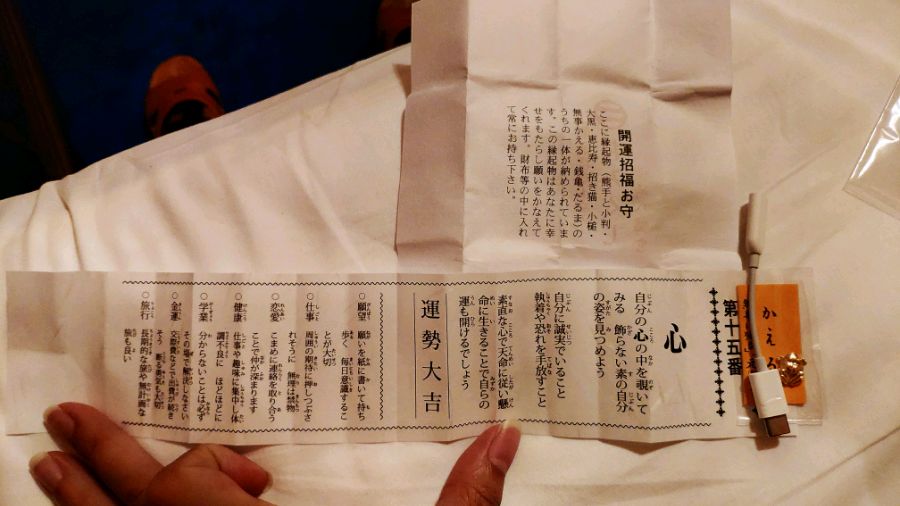 開運招福お守
ここに縁起物(熊手と小判・
大黒・恵比寿・招き猫・小槌・
無事かえる・銭亀・だるま)の
うちの一体が納められていま
す。この縁起物はあなたに幸
せをもたらし願いをかなえて
くれます。財布等の中に入れ
て常にお持ち下さい。
かえる
第十五番
心
自分の心の中を覗いて
みる 飾らない素の自分
の姿を見つめよう
自分に誠実でいること
執着や恐れを手放すこと
素直な心で天命に従い懸
命に生きることで自らの
運も開けるでしょう
運勢大吉
○願望 願いを紙に書いて持ち
歩く 毎日意識するこ
とが大切
○仕事 周囲の期待に押しつぶさ
れそうに 無理は禁物
○恋愛 こまめに連絡を取り合う
ことで仲が深まります
○健康 仕事や趣味に集中し体
調不良に ほどほどに
○学業 分からないことは必ず
その場で解決しなさい
○金運 交際費などで出費が続き
そう 断る勇気も大切
○旅行 長期的な旅や無計画な
旅も良い